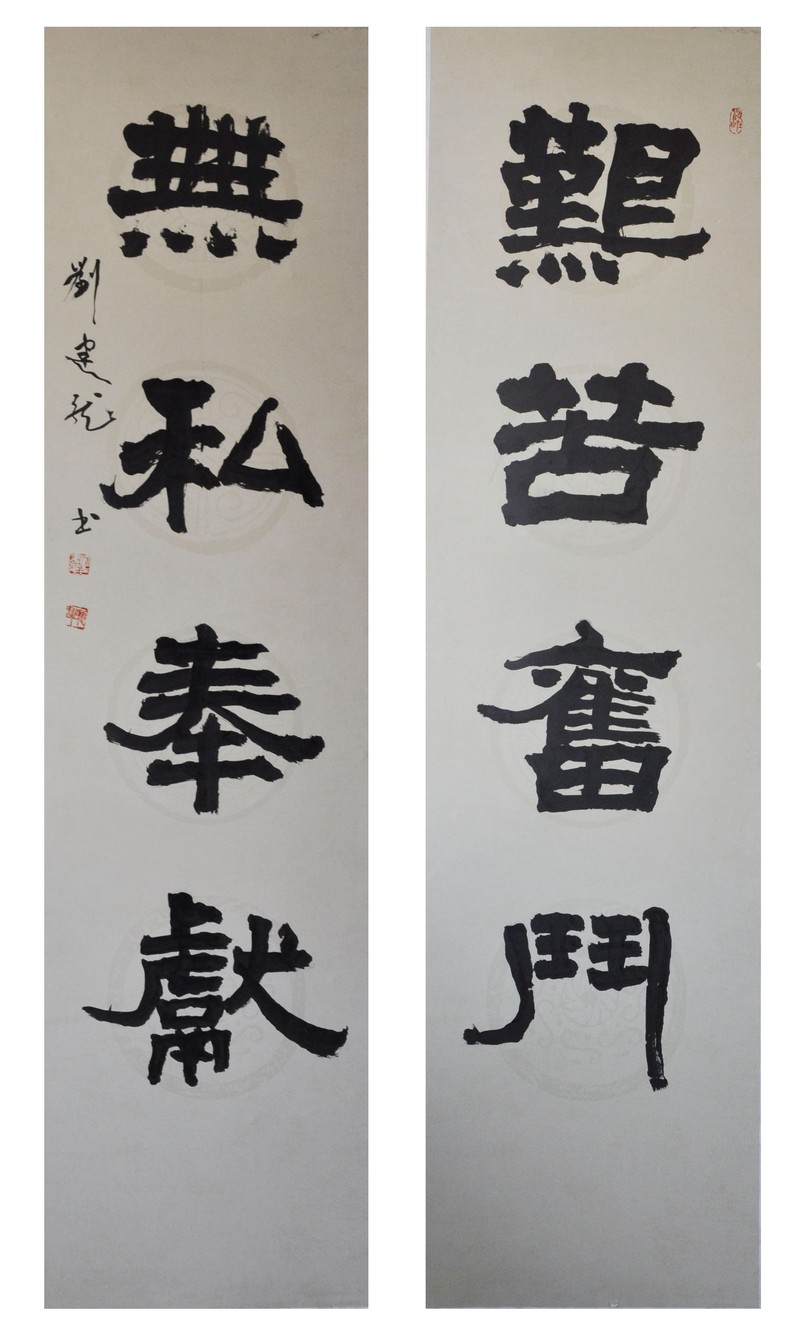 艱苦奮鬥
無私奉獻
劉建龍書